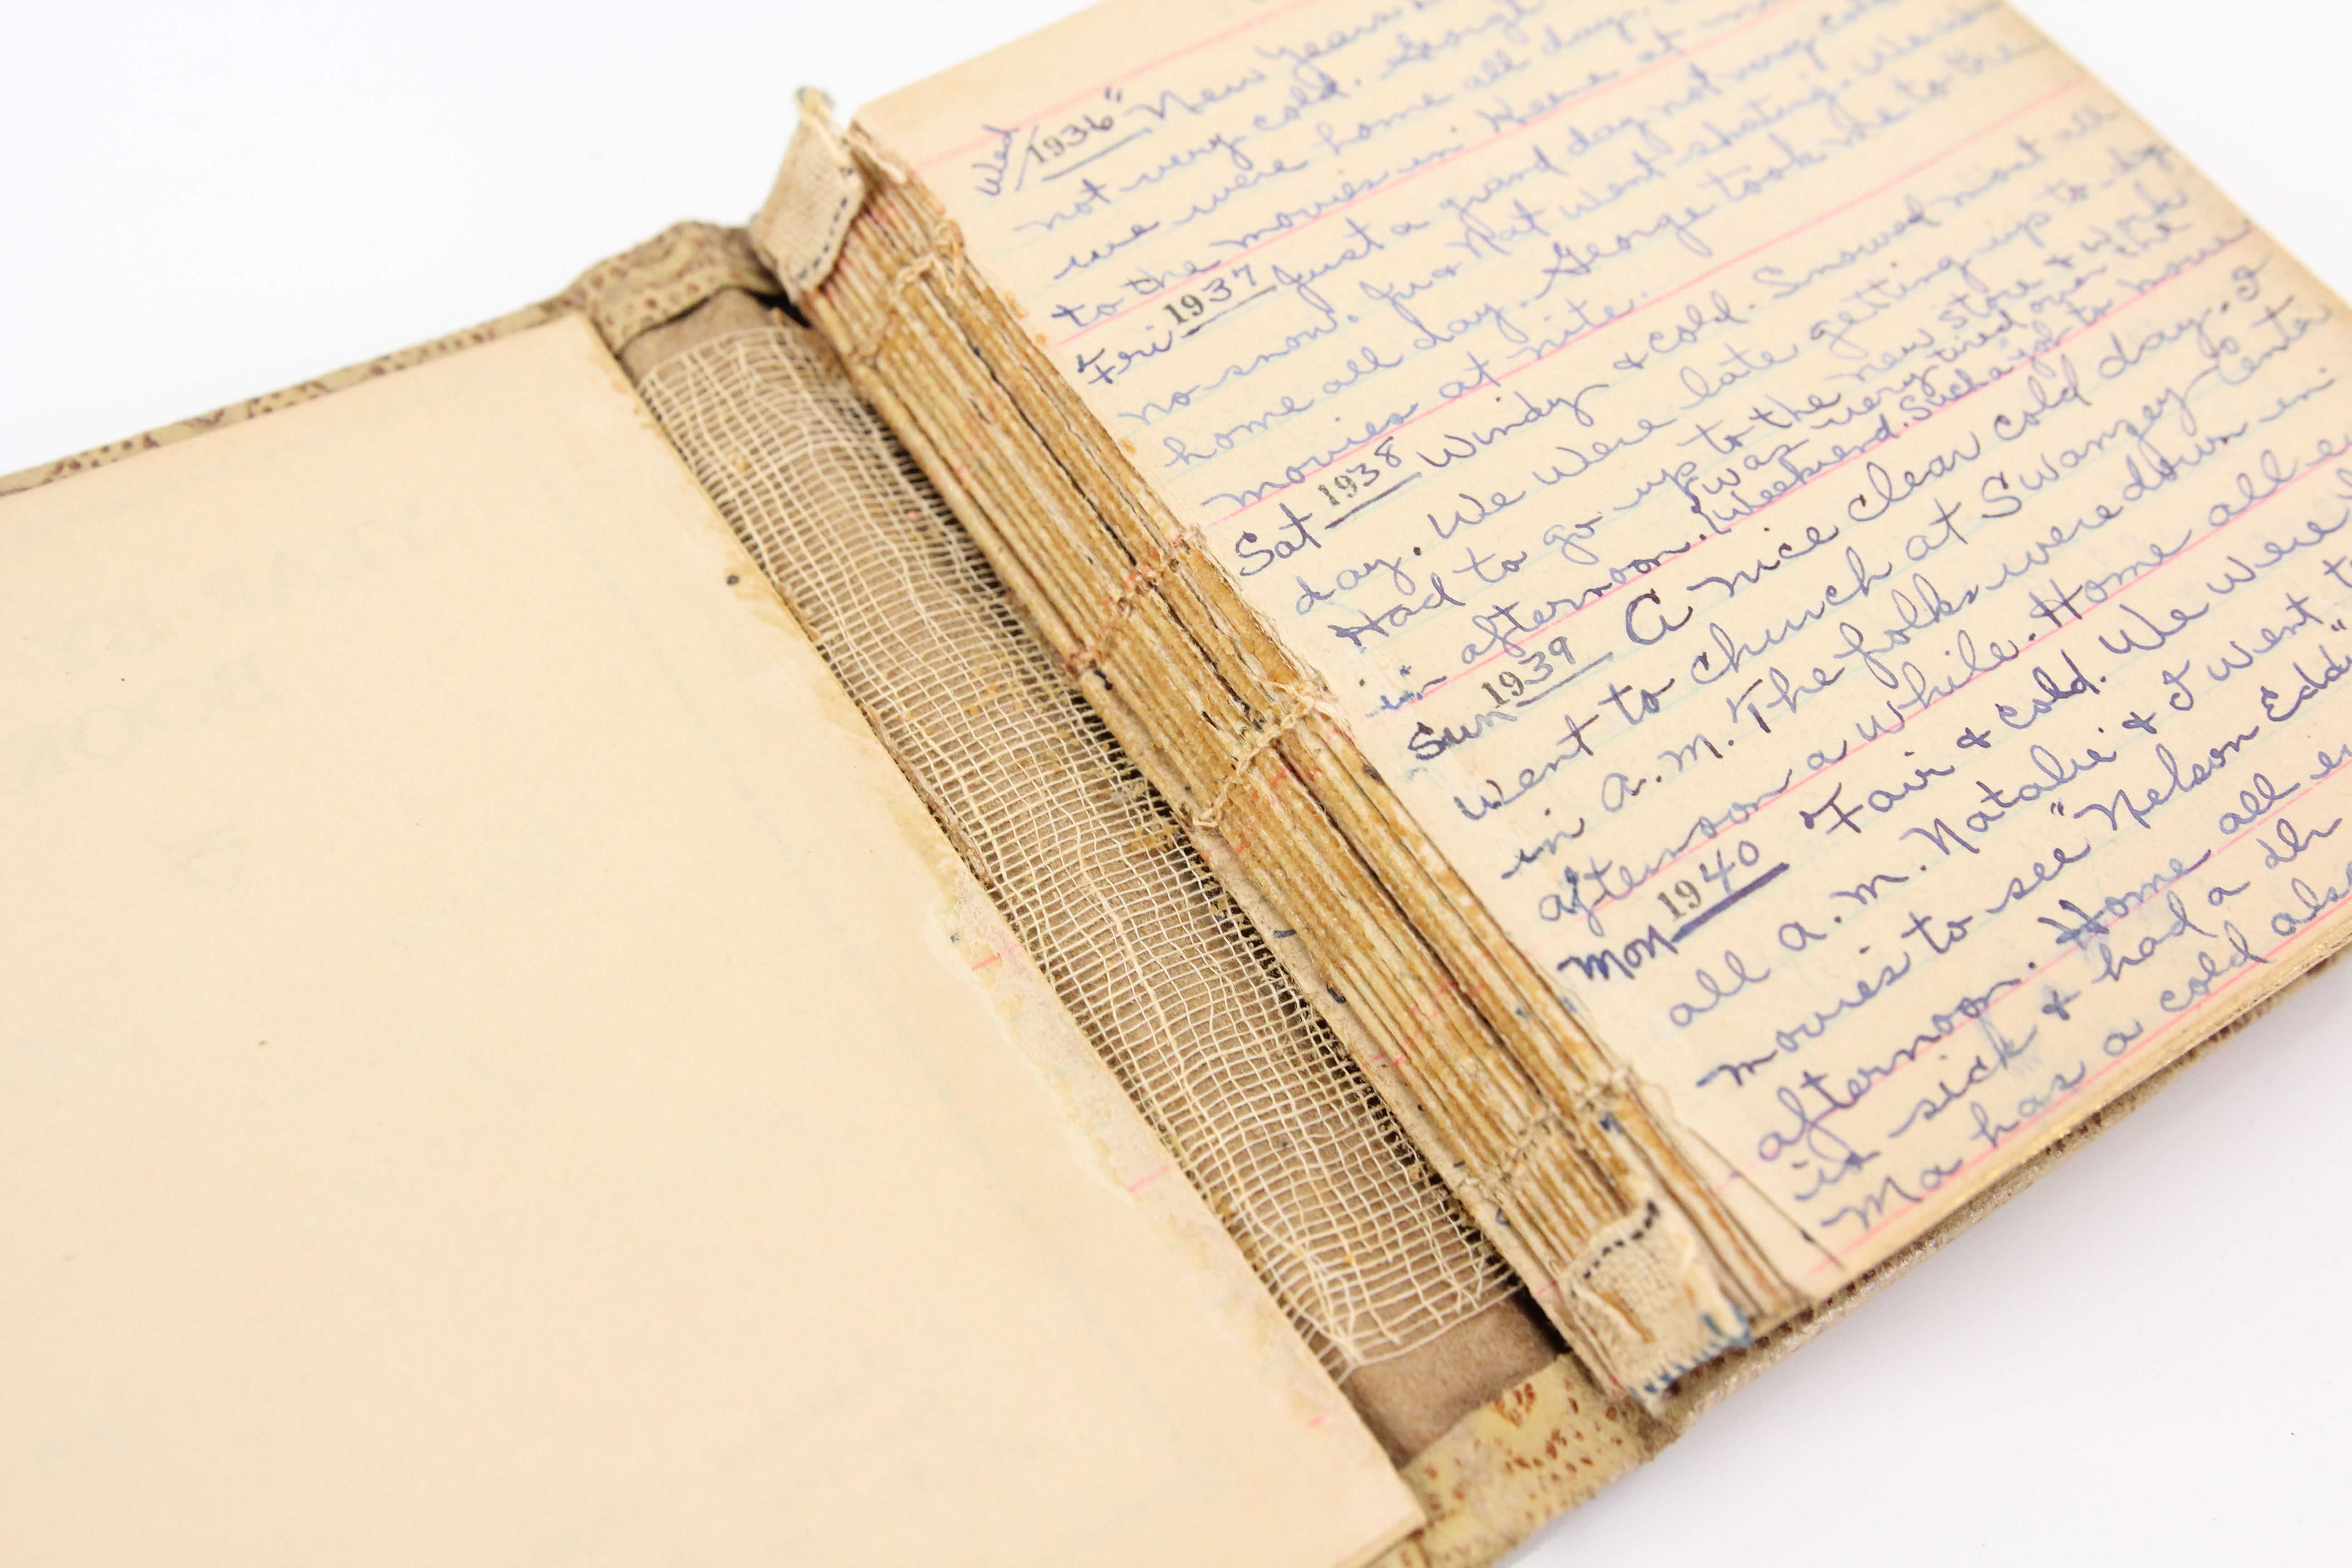 Wed 1936 "New Years
not very cold. George
we were home all day.
to the movies in Keene at
Fri 1937 Just a grand day not very cold
no snow. Ju & Nat went skating. We were
home all day. George took me to the
movies at nite.
Sat 1938 Windy & cold. Snowed most all
day. We were late getting up to-day.
Had to go up to the new store & work
in afternoon. I was very tired over the
weekend. Such a job to move
Sun 1939 A nice clear cold day. I
went to church at Swanzey Center
in a.m. The folks were down in
afternoon a while. Home all e
Mon 1940 Fair & cold. We were
all a.m. Natalie & I went to
movies to see "Nelson Eddy"
afternoon. Home all e
is sick & had a
Ma has a cold also